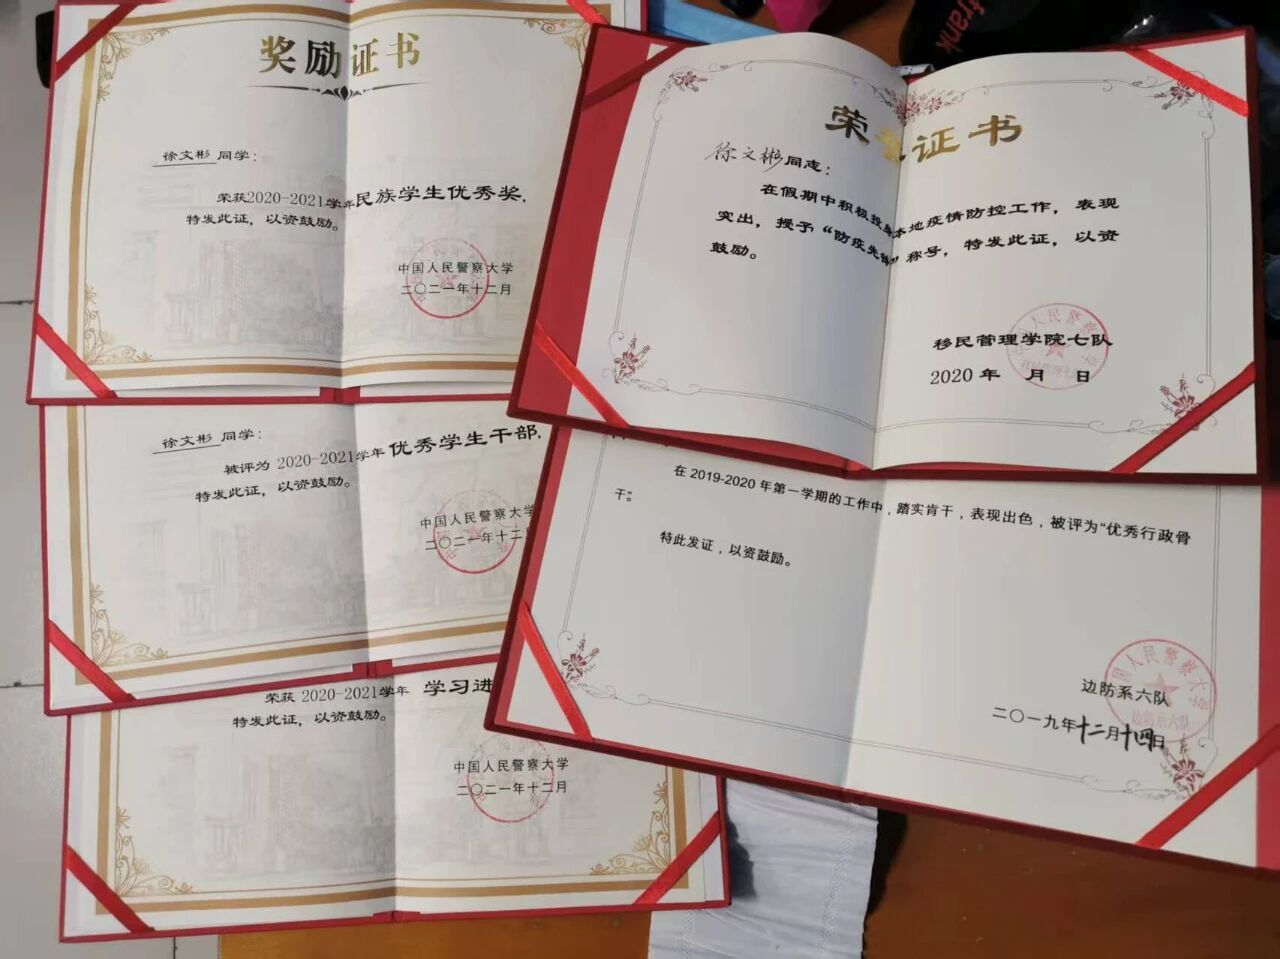 奖励证书
徐文彬 同学：
荣获2020-2021学年民族学生优秀奖，
特发此证，以资鼓励。
中国人民警察大学
二〇二一年十二月
徐文彬 同学：
被评为 2020-2021学年 优秀学生干部，
特发此证，以资鼓励。
中国人民警察大学
二〇二一年十二月
荣获 2020-2021学年 学习进
特发此证，以资鼓励。
中国人民警察大学
二〇二一年十二月
荣 证书
徐文彬同志：
在假期中积极投 本地疫情防控工作，表现
突出，授予“防疫先锋”称号，特发此证，以资
鼓励。
移民管理学院七队
2020 年 月 日
在 2019-2020 年第一学期的工作中，踏实肯干，表现出色，被评为“优秀行政骨
干”。
特此发证，以资鼓励。
边防系六队
二〇一九年十二月十四日
frank